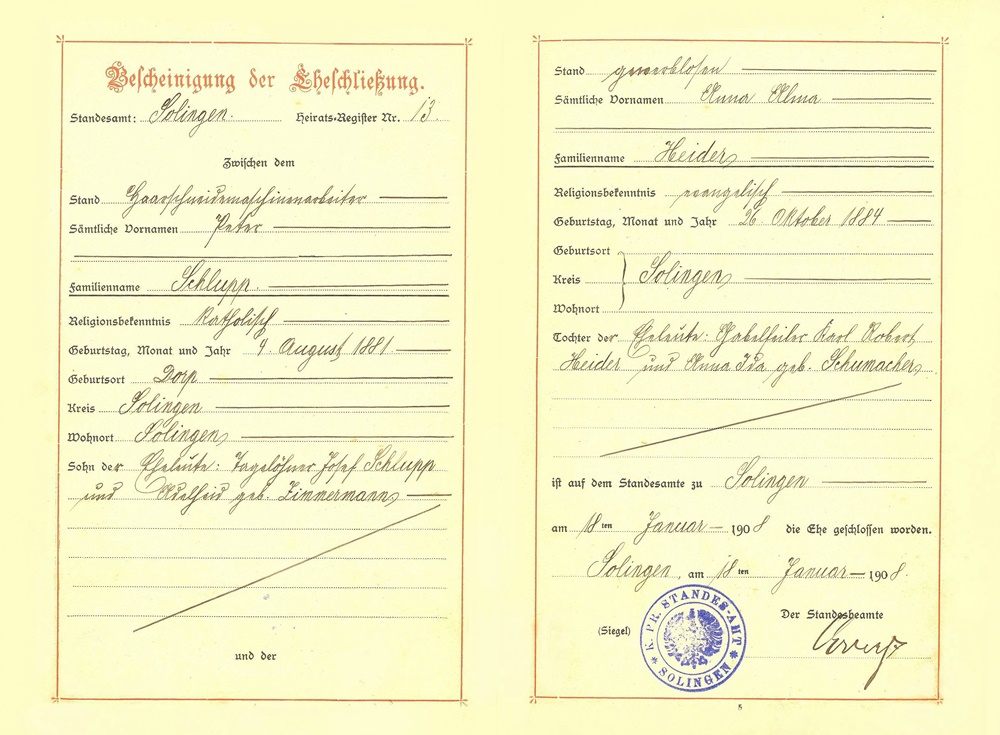 Bescheinigung der Eheschließung.
Standesamt: Solingen. Heirats-Register Nr. 13.
Zwischen dem
Stand Haarschneidemaschinenarbeiter
Sämtliche Vornamen Peter
Familienname Schlupp.
Religionsbekenntnis katholisch
Geburtstag, Monat und Jahr 4. August 1881
Geburtsort Dorp
Kreis Solingen
Wohnort Solingen
Sohn der Eheleute: Tagelöhner Josef Schlupp
und Adelheid geb. Zimmermann
und der
Stand gewerblosen
Sämtliche Vornamen Anna Alma
Familienname Heider
Religionsbekenntnis evangelisch
Geburtstag, Monat und Jahr 26 Oktober 1884
Geburtsort
Kreis Solingen
Wohnort
Tochter der Eheleute: Gabelfeiler Karl Robert
Heider und Anna Ida geb. Schumacher
ist auf dem Standesamte zu Solingen
am 18ten Januar 1908 die Ehe geschlossen worden.
Solingen, am 18ten Januar 1908.
Der Standesbeamte
(Siegel)
K. PR. STANDES-AMT
* SOLINGEN *
5